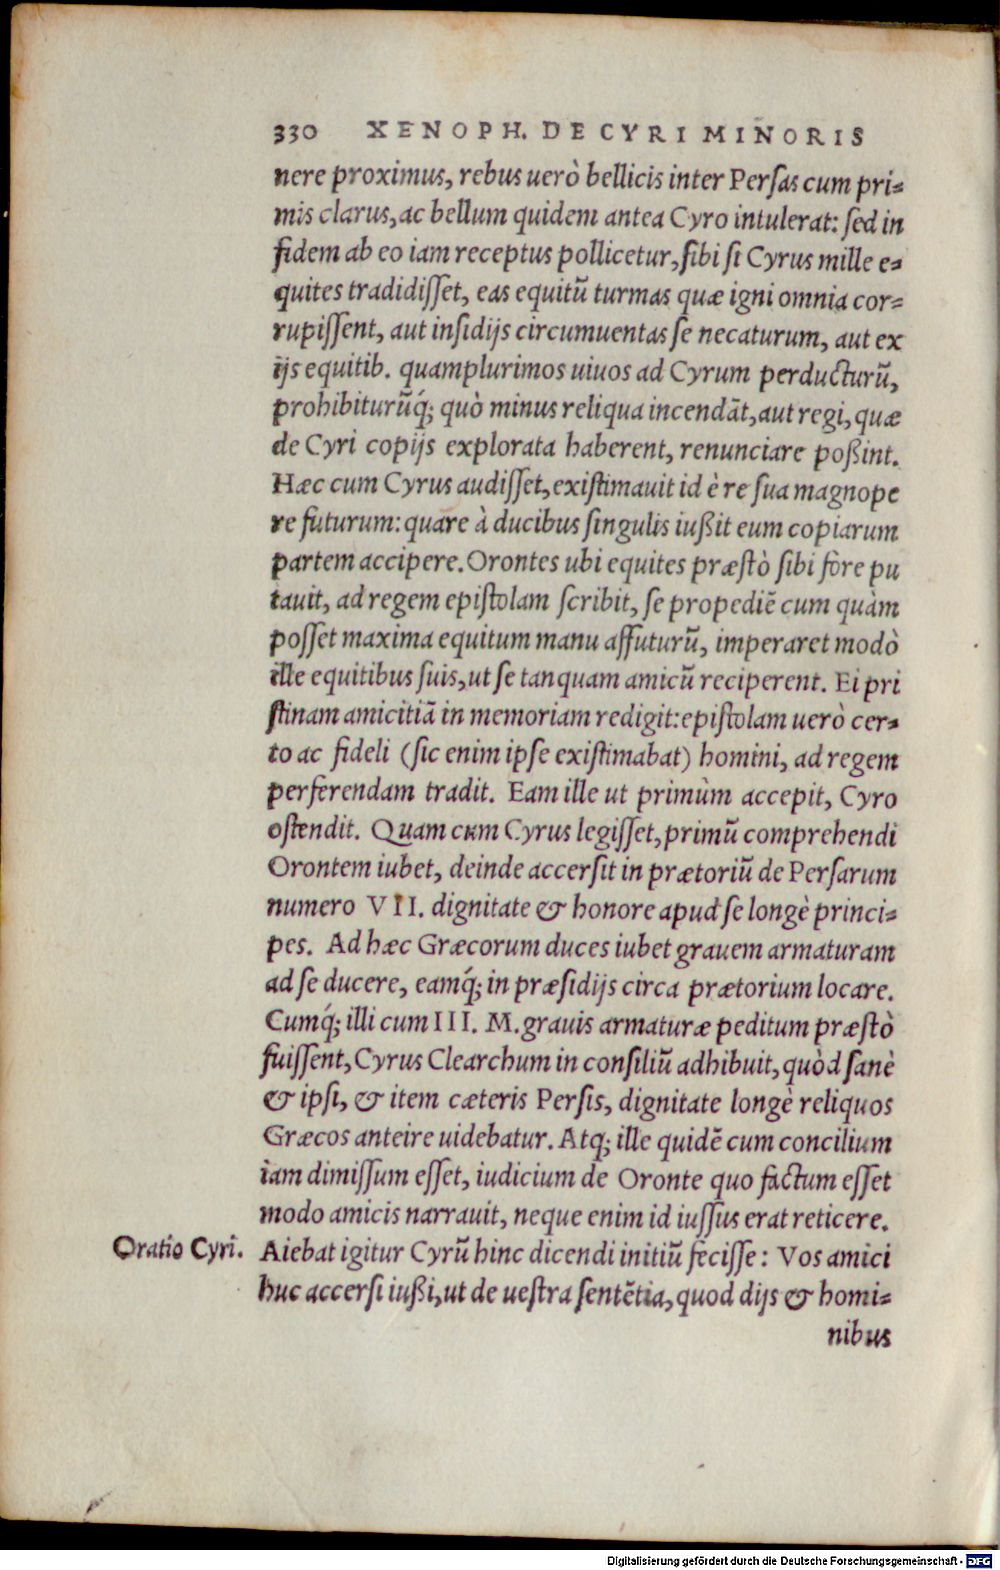 330 XENOPH. DE CYRI MINORIS
nere proximus, rebus uerò bellicis inter Persas cum pri=
mis clarus, ac bellum quidem antea Cyro intulerat: sed in
fidem ab eo iam receptus pollicetur, sibi si Cyrus mille e=
quites tradidisset, eas equitũ turmas quæ igni omnia cor=
rupissent, aut insidijs circumuentas se necaturum, aut ex
ijs equitib. quamplurimos uiuos ad Cyrum perducturũ,
prohibiturũq́; quò minus reliqua incendãt, aut regi, quæ
de Cyri copijs explorata haberent, renunciare poßint.
Hæc cum Cyrus audisset, existimauit id è re sua magnope
re futurum: quare à ducibus singulis iußit eum copiarum
partem accipere. Orontes ubi equites præstò sibi fore pu
tauit, ad regem epistolam scribit, se propediẽ cum quàm
posset maxima equitum manu affuturũ, imperaret modò
ille equitibus suis, ut se tanquam amicũ reciperent. Ei pri
stinam amicitiã in memoriam redigit: epistolam uerò cer=
to ac fideli (sic enim ipse existimabat) homini, ad regem
perferendam tradit. Eam ille ut primùm accepit, Cyro
ostendit. Quam cum Cyrus legisset, primũ comprehendi
Orontem iubet, deinde accersit in prætoriũ de Persarum
numero VII. dignitate & honore apud se longè princi=
pes. Ad hæc Græcorum duces iubet grauem armaturam
ad se ducere, eamq́; in præsidijs circa prætorium locare.
Cumq́; illi cum III. M. grauis armaturæ peditum præstò
fuissent, Cyrus Clearchum in consiliũ adhibuit, quòd sanè
& ipsi, & item cæteris Persis, dignitate longè reliquos
Græcos anteire uidebatur. Atq; ille quidẽ cum concilium
iam dimissum esset, iudicium de Oronte quo factum esset
modo amicis narrauit, neque enim id iussus erat reticere.
Oratio Cyri. Aiebat igitur Cyrũ hinc dicendi initiũ fecisse: Vos amici
huc accersi iußi, ut de uestra sentẽtia, quod dijs & homi=
nibus
Digitalisierung gefördert durch die Deutsche Forschungsgemeinschaft - DFG